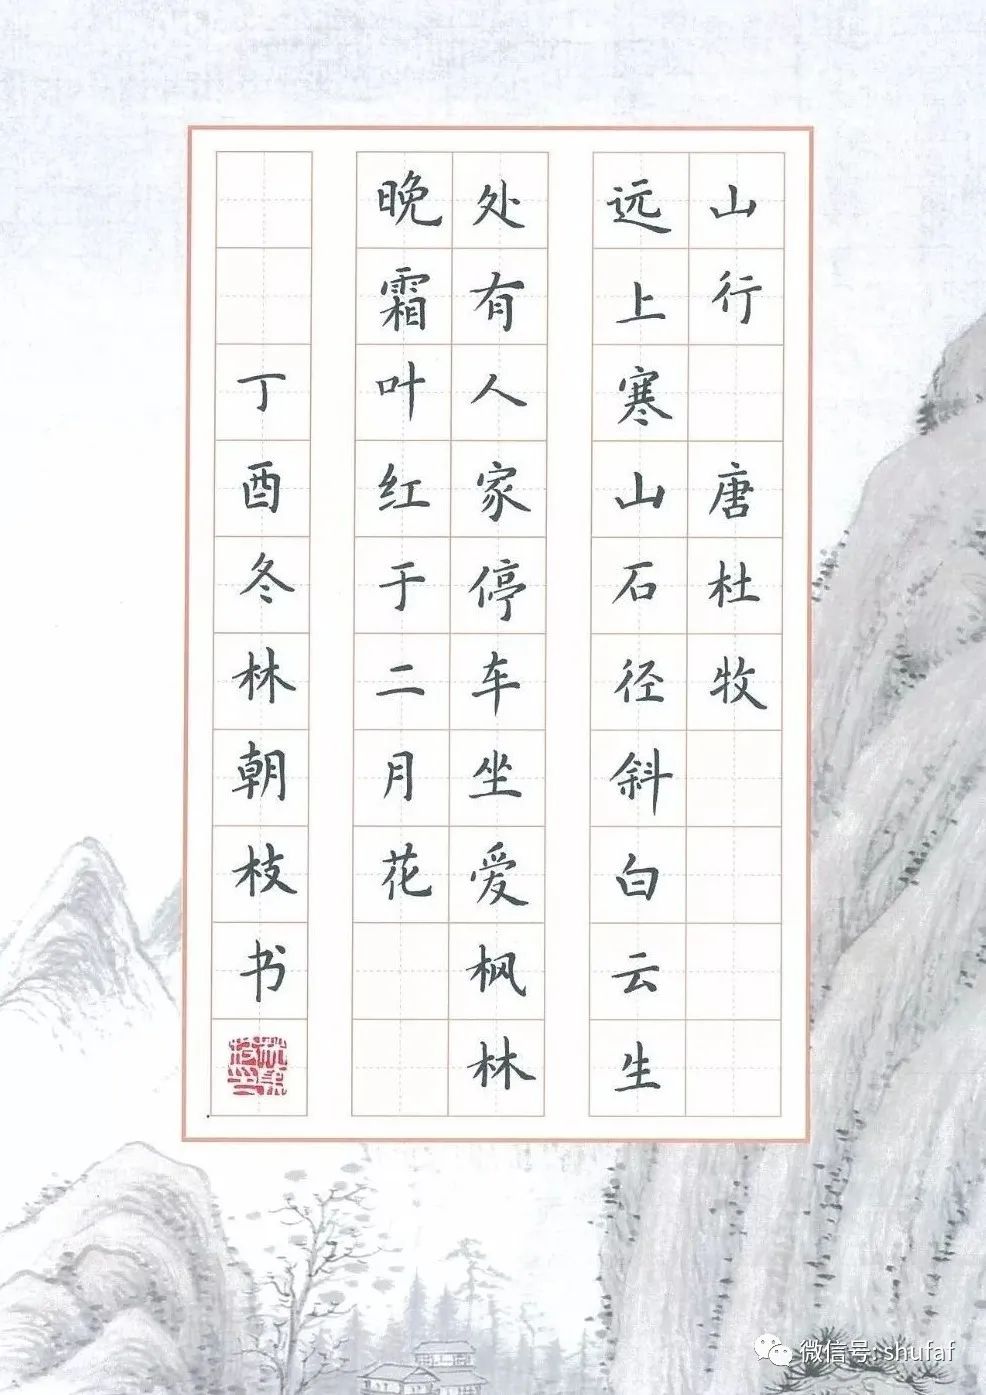 山行 唐杜牧
远上寒山石径斜白云生
处有人家停车坐爱枫林
晚霜叶红于二月花
丁酉冬林朝枝书
微信号: shufaf